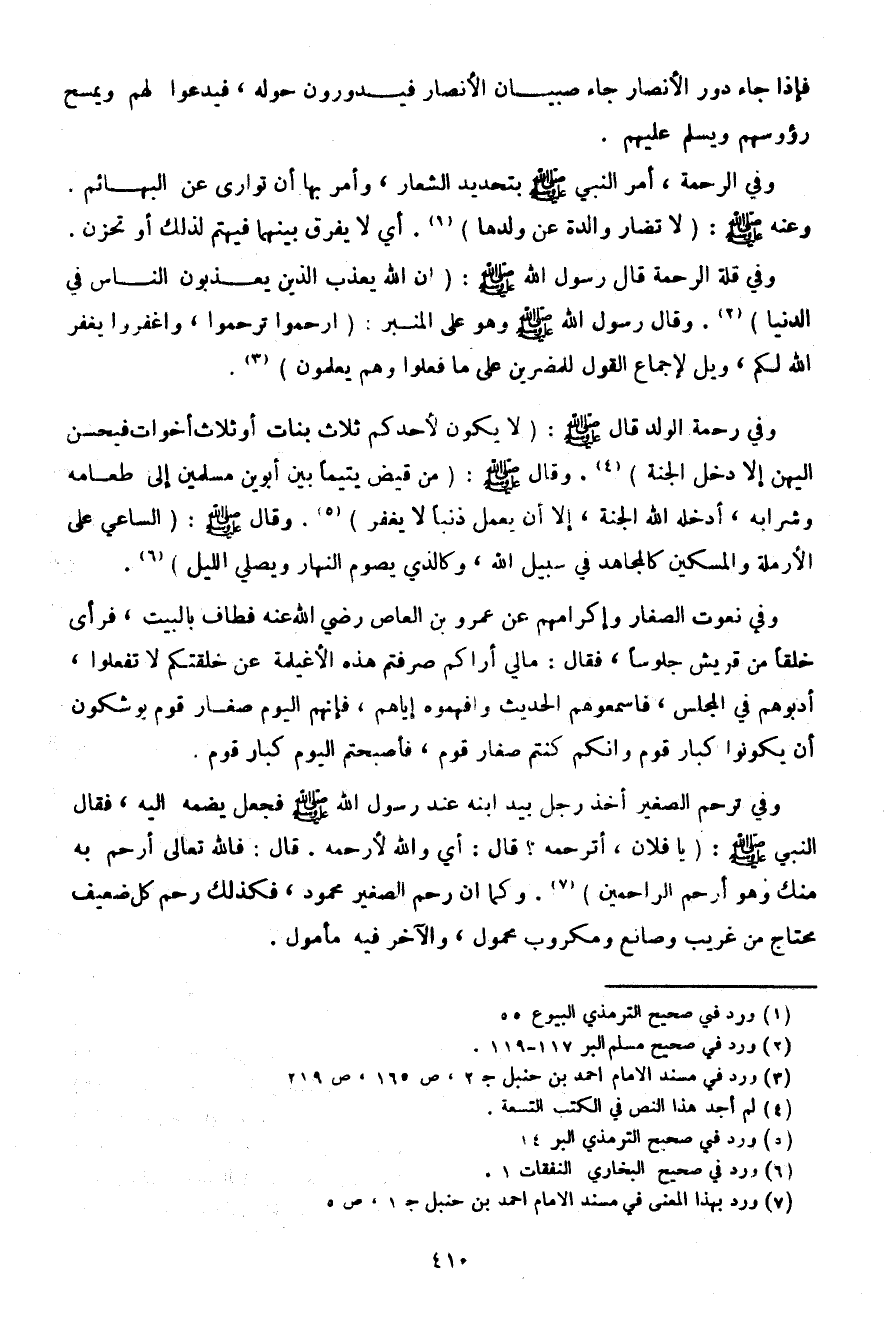 فإذا جاء دور الأنصار جاء صبيــــان الأنصار فيـــدورون حوله ، فيدعوا لهم ويمسح
رؤوسهم ويسلم عليهم .
وفي الرحمة ، أمر النبي ﷺ بتحديد الشعار ، وأمر بها أن توارى عن البهــائم .
وعنه ﷺ : ( لا تضار والدة عن ولدها ) (١) . أي لا يفرق بينهما فيهتم لذلك أو تحزن .
وفي قلة الرحمة قال رسول الله ﷺ : ( ان الله يعذب الذين يعــذبون النــاس في
الدنيا ) (٢) . وقال رسول الله ﷺ وهو على المنــبر : ( ارحموا ترحموا ، واغفروا يغفر
الله لــكم ، ويل لإجماع القول للمضرين على ما فعلوا وهم يعلمون ) (٣) .
وفي رحمة الولد قال ﷺ : ( لا يكون لأحدكم ثلاث بنات أو ثلاث أخوات فيحسن
اليهن إلا دخل الجنة ) (٤) . وقال ﷺ : ( من قيض يتيماً بين أبوين مسلمين إلى طعــامه
وشرابه ، أدخله الله الجنة ، إلا أن يعمل ذنباً لا يغفر ) (٥) . وقال ﷺ : ( الساعي على
الأرملة والمسكين كالمجاهد في سبيل الله ، وكالذي يصوم النهار ويصلي الليل ) (٦) .
وفي نعوت الصغار وإكرامهم عن عمرو بن العاص رضي الله عنه فطاف بالبيت ، فرأى
خلقاً من قريش جلوساً ، فقال : مالي أراكم صرفتم هذه الأغيلمة عن خلقتكم لا تفعلوا ،
أدبوهم في المجلس ، فاسمعوهم الحديث وافهموه إياهم ، فإنهم اليوم صغــار قوم يوشكون
أن يكونوا كبار قوم وانكم كنتم صغار قوم ، فأصبحتم اليوم كبار قوم .
وفي ترحم الصغير أخذ رجل بيد ابنه عند رسول الله ﷺ فجعل يضمه اليه ، فقال
النبي ﷺ : ( يا فلان ، أترحمه ؟ قال : أي والله لأرحمه . قال : فالله تعالى أرحم به
منك وهو أرحم الراحمين ) (٧) . وكما ان رحم الصغير محمود ، فكذلك رحم كل ضعيف
محتاج من غريب وصانع ومكروب محمول ، والآخر فيه مأمول .
(١) ورد في صحيح الترمذي البيوع ٥٥
(٢) ورد في صحيح مسلم البر ١١٧-١١٩ .
(٣) ورد في مسند الامام احمد بن حنبل جـ ٢ ، ص ١٦٥ ، ص ٢١٩
(٤) لم أجد هذا النص في الكتب التسعة .
(٥) ورد في صحيح الترمذي البر ١٤
(٦) ورد في صحيح البخاري النفقات ١ .
(٧) ورد بهذا المعنى في مسند الامام احمد بن حنبل جـ ١ ، ص ٥
٤١٠